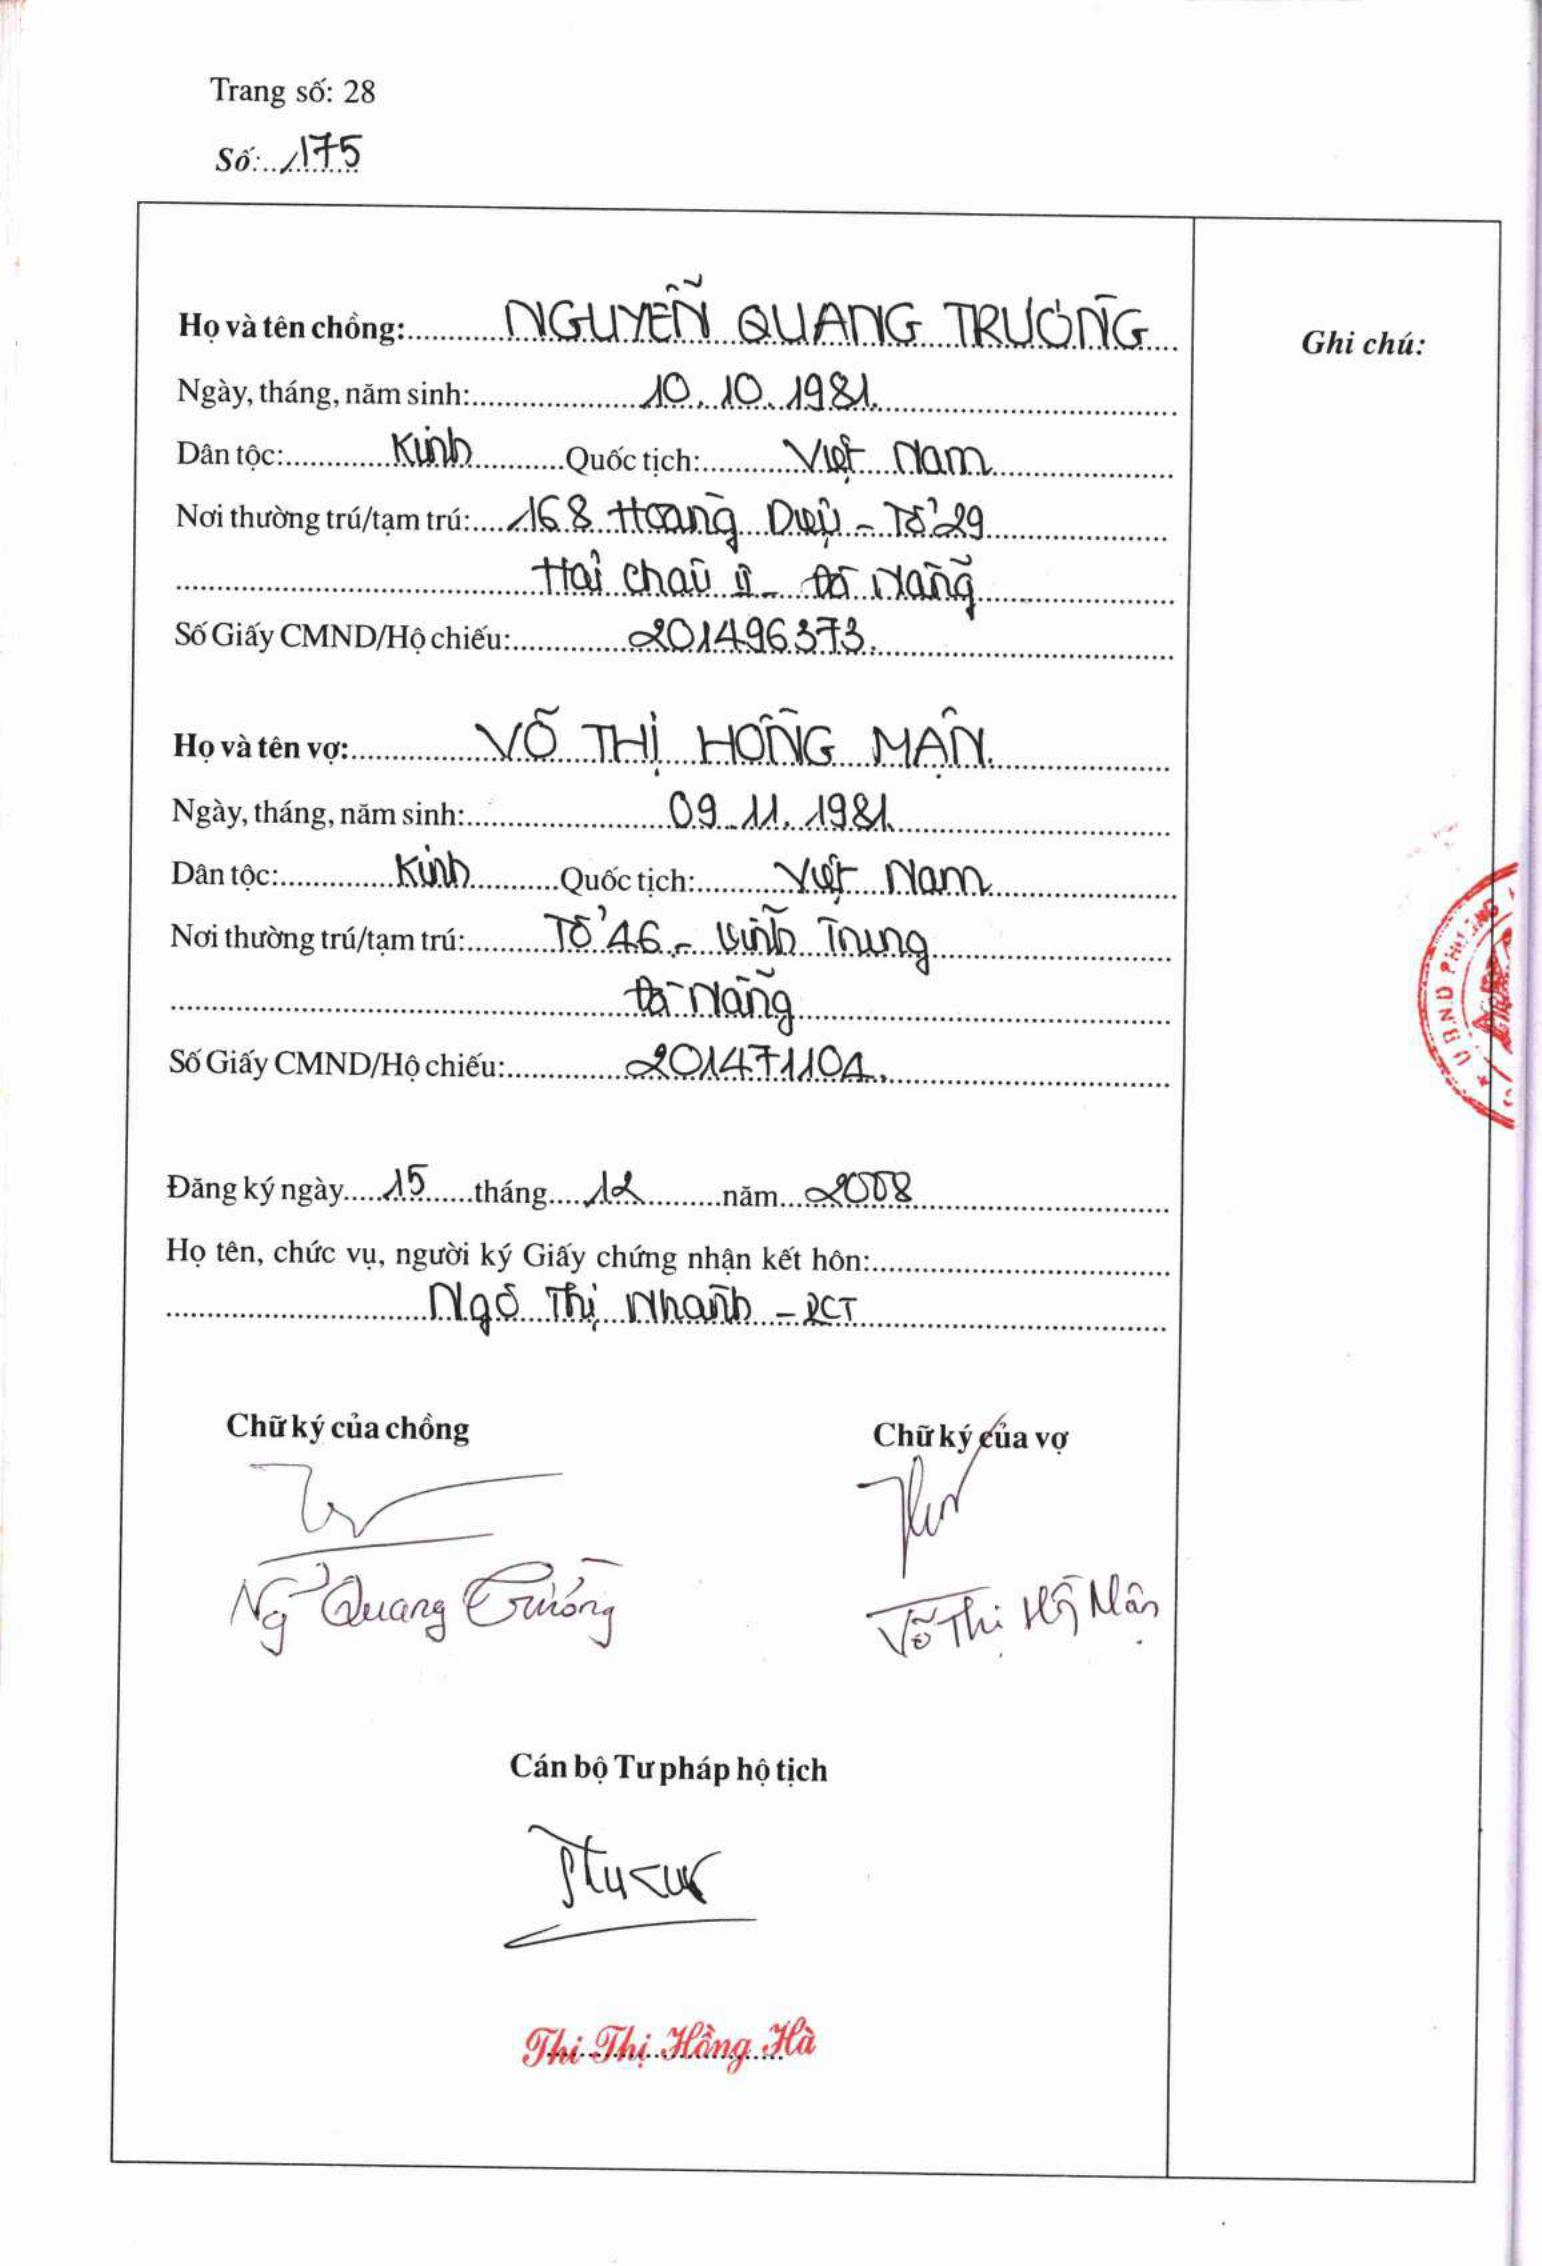 Trang số: 28
Số: 175
Họ và tên chồng: NGUYỄN QUANG TRƯỜNG
Ghi chú:
Ngày, tháng, năm sinh: 10.10.1981.
Dân tộc: Kinh Quốc tịch: Việt Nam
Nơi thường trú/tạm trú: 168 Hoàng Diệu - Tổ 29
Hải Châu II - Đà Nẵng
Số Giấy CMND/Hộ chiếu: 201496373.
Họ và tên vợ: VÕ THỊ HỒNG MẬN.
Ngày, tháng, năm sinh: 09.11.1981.
Dân tộc: Kinh Quốc tịch: Việt Nam
Nơi thường trú/tạm trú: Tổ 46 - Vĩnh Trung
Đà Nẵng
Số Giấy CMND/Hộ chiếu: 201471104.
U.B.N.D PHƯỜNG
Đăng ký ngày 15 tháng 12 năm 2008
Họ tên, chức vụ, người ký Giấy chứng nhận kết hôn:
Ngô Thị Nhanh - PCT
Chữ ký của chồng Chữ ký của vợ
Ng Quang Trường Võ Thị Hg Mận
Cán bộ Tư pháp hộ tịch
Thi Thị Hồng Hà